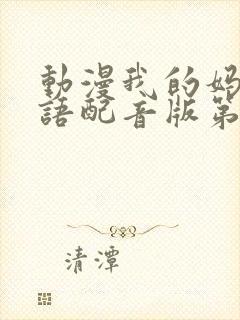 動漫我的妈
語配音版第
清潭